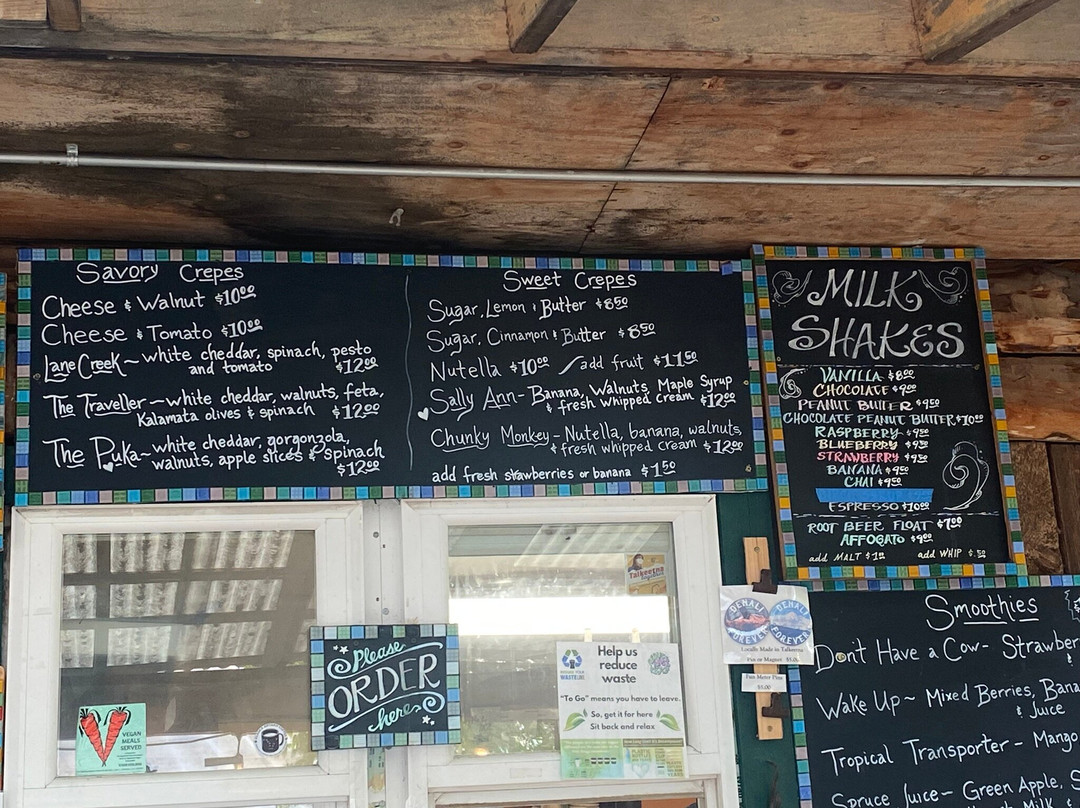 Savory Crepes
Cheese & Walnut $10.00
Cheese & Tomato $10.00
Lane Creek~ white cheddar, spinach, pesto
and tomato $12.00
The Traveller~white cheddar, walnuts, feta,
Kalamata olives & spinach $12.00
The Puka~white cheddar, gorgonzola,
walnuts, apple slices & spinach
$12.00
Sweet Crepes
Sugar, Lemon & Butter $8.50
Sugar, Cinnamon & Butter $8.50
Nutella $10.00 / add fruit $11.50
Sally Ann- Banana, Walnuts, Maple Syrup
& fresh whipped cream $12.00
Chunky Monkey- Nutella, banana, walnuts,
& fresh whipped cream $12.00
add fresh strawberries or banana $1.50
MILK
SHAKES
VANILLA $8.00
CHOCOLATE $9.00
PEANUT BUTTER $9.50
CHOCOLATE PEANUT BUTTER $10.00
RASPBERRY $9.50
BLUEBERRY $9.50
STRAWBERRY $9.50
BANANA $9.50
CHAI $9.50
ESPRESSO $10.00
ROOT BEER FLOAT $7.00
AFFOGATO $9.00
add MALT $1.00 add WHIP $.50
Smoothies
Don't Have a Cow- Strawber
Wake Up~ Mixed Berries, Bana
& Juice
Tropical Transporter- Mango
Spruce Juice- Green Apple, S
Please
ORDER
here
VEGAN
MEALS
SERVED
Talkeetna
Help us
reduce
waste
"To Go" means you have to leave.
So, get it for here
Sit back and relax
DENALI
FOREVER
DENALI
FOREVER
Locally Made in Talkeetna
Pin or Magnet $5.00
$5.00